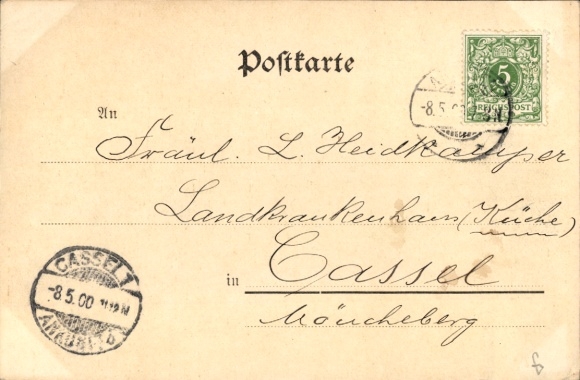 Postkarte
5
REICHSPOST
-8.5.00
An
Fräul. L. Heidkamper
Landkrankenhaus (Küche)
in Cassel
Möncheberg
CASSEL 1
-8.5.00 11-12N